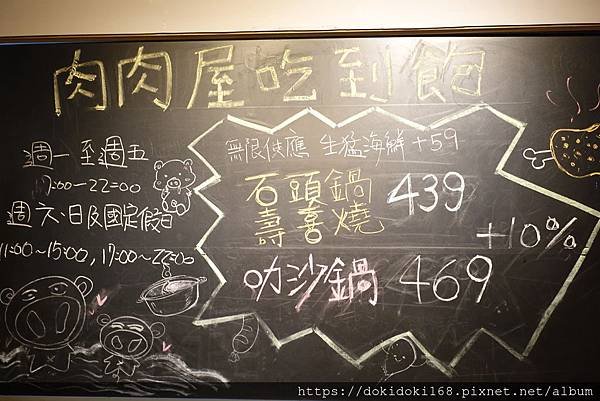 肉肉屋吃到飽
週一至週五
17:00~22:00
週六、日及國定假日
11:00~15:00, 17:00~22:00
無限供應 生猛海鮮 +59
石頭鍋
壽喜燒
439
叻沙鍋 469
+10%
https://dokidoki168.pixnet.net/album